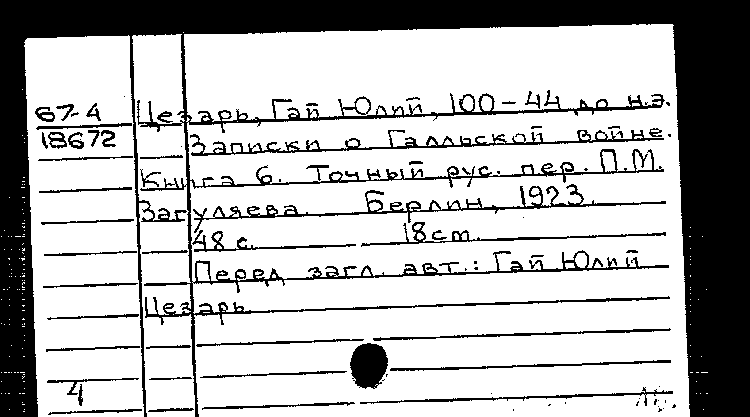 67-4 Цезарь, Гай Юлий, 100-44 до н.э.
18672 Записки о Галльской войне.
Книга 6. Точный рус. пер. П.М.
Загуляева. Берлин, 1923.
48 с. 18 ст.
Перед загл. авт.: Гай Юлий
Цезарь
4